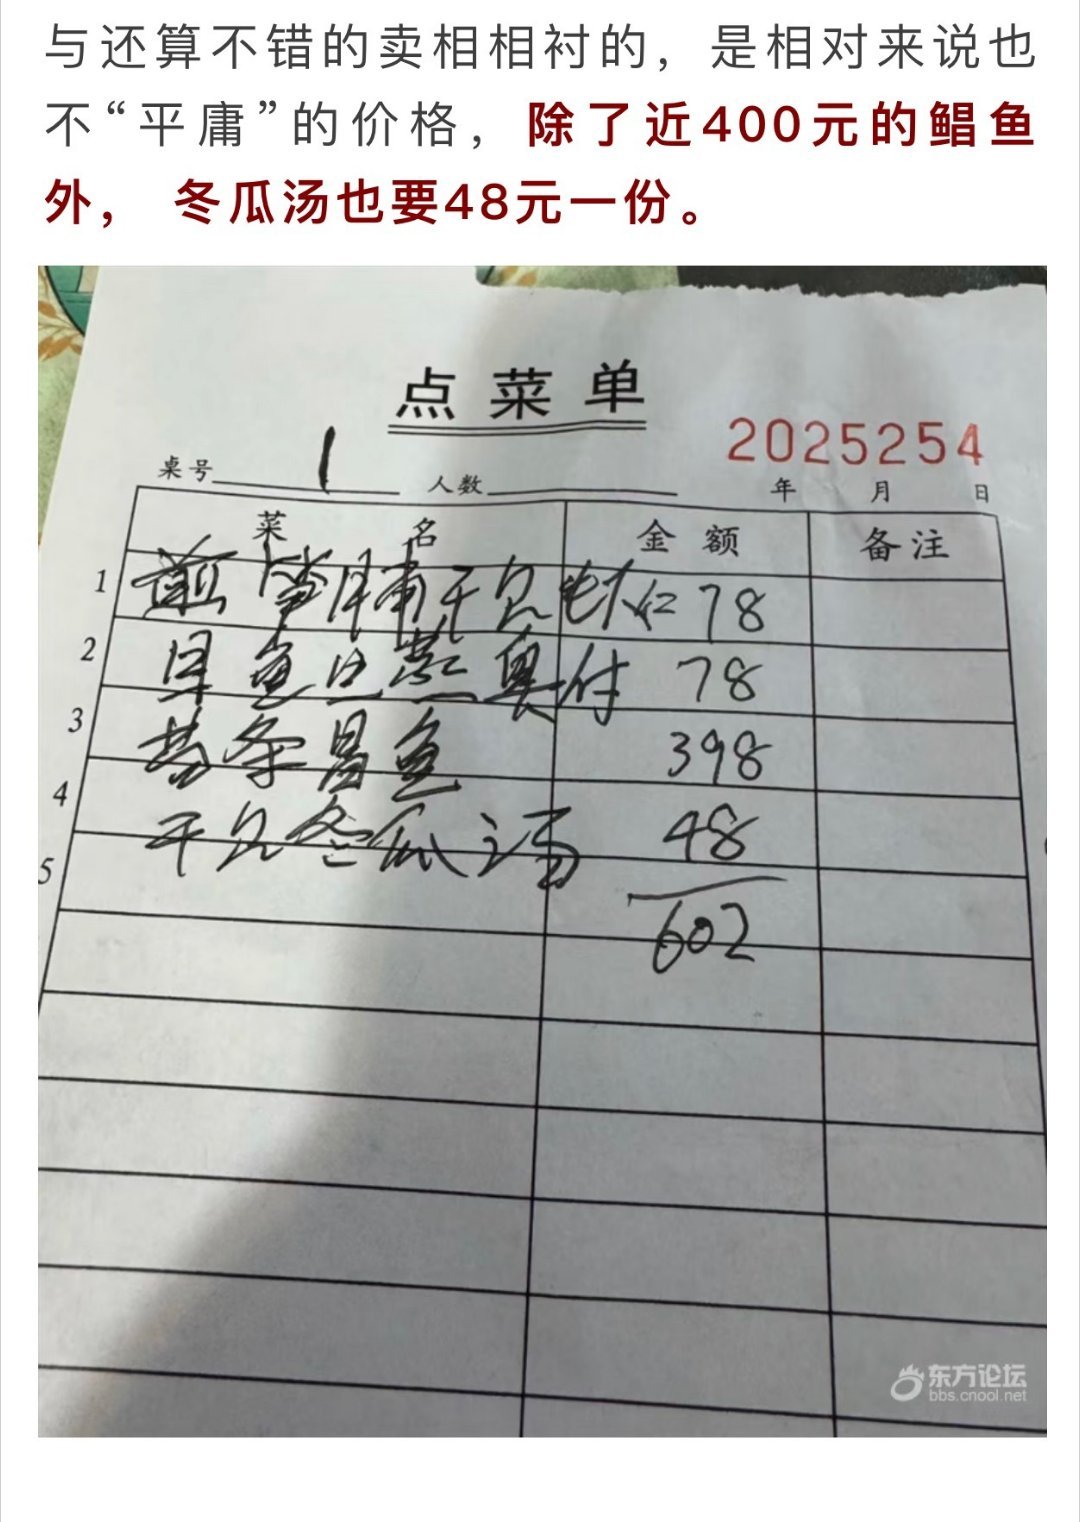 与还算不错的卖相相衬的，是相对来说也
不“平庸”的价格，除了近400元的鲳鱼
外， 冬瓜汤也要48元一份。
点菜单
2025254
桌号 1 人数 年 月 日
菜名 金额 备注
1 笋 干贝 仁 78
2 鱼 78
3 条昌鱼 398
4 干贝冬瓜汤 48
5
602
东方论坛
bbs.cnool.net